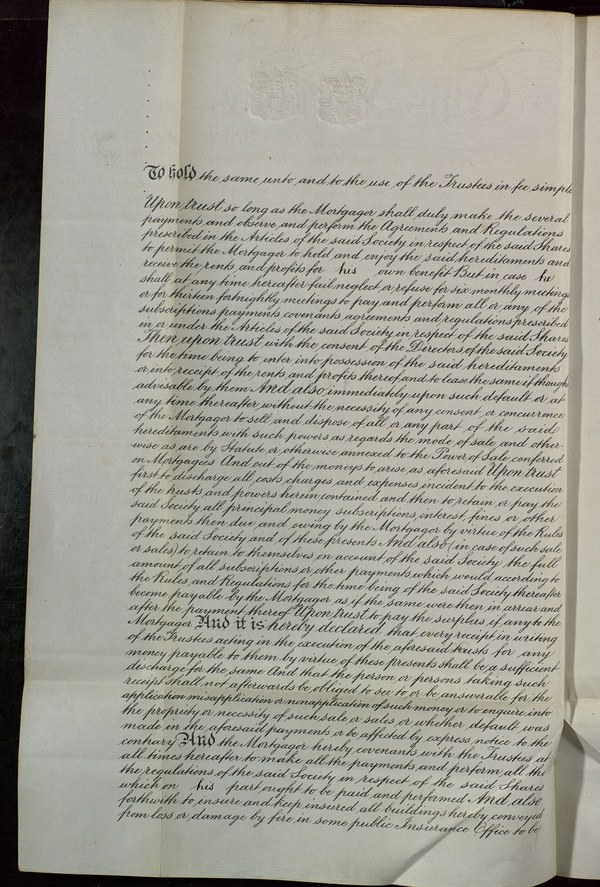 To hold the same unto and to the use of the Trustees in fee simple
Upon trust so long as the Mortgagor shall duly make the several
payments and observe and perform the Agreements and Regulations
prescribed in the Articles of the said Society in respect of the said Shares
to permit the Mortgagor to hold and enjoy the said hereditaments and
receive the rents and profits for his own benefit But in case he
shall at any time hereafter fail neglect or refuse for six monthly meetings
or for thirteen fortnightly meetings to pay and perform all or any of the
subscriptions payments covenants agreements and regulations prescribed
in or under the Articles of the said Society in respect of the said Shares
Then upon trust with the consent of the Directors of the said Society
for the time being to enter into possession of the said hereditaments
or into receipt of the rents and profits thereof and to lease the same if though
advisable by them And also immediately upon such default or at
any time thereafter without the necessity of any consent or concurrence
of the Mortgagor to sell and dispose of all or any part of the said
hereditaments with such powers as regards the mode of sale and other-
wise as are by Statute or otherwise annexed to the Power of Sale conferred
on Mortgagees And out of the moneys to arise as aforesaid Upon trust
first to discharge all costs charges and expenses incident to the execution
of the trusts and powers herein contained and then to retain or pay the
said Society all principal money subscriptions interest fines or other
payments then due and owing by the Mortgagor by virtue of the Rules
of the said Society and of these presents And also (in case of such sale
or sales) to retain to themselves on account of the said Society the full
amount of all subscriptions or other payments which would according to
the Rules and Regulations for the time being of the said Society thereafter
become payable by the Mortgagor as if the same were then in arrear and
after the payment thereof Upon trust to pay the surplus if any to the
Mortgagor And it is hereby declared that every receipt in writing
of the Trustees acting in the execution of the aforesaid trusts for any
money payable to them by virtue of these presents shall be a sufficient
discharge for the same And that the person or persons taking such
receipt shall not afterwards be obliged to see to or be answerable for the
application misapplication or nonapplication of such money or to enquire into
the propriety or necessity of such sale or sales or whether default was
made in the aforesaid payments or be affected by express notice to the
contrary And the Mortgagor hereby covenants with the Trustees at
all times hereafter to make all the payments and perform all the
the regulations of the said Society in respect of the said Shares
which on his part ought to be paid and performed And also
forthwith to insure and keep insured all buildings hereby conveyed
from loss or damage by fire in some public Insurance Office to be